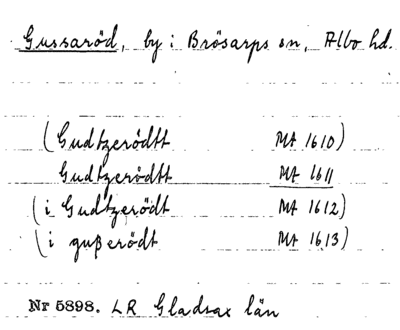 Gussaröd, by i Brösarps sn, Albo hd.
(Gudtzerödtt Mt 1610)
Gudtzerödtt Mt 1611
(i Gudtzerödt Mt 1612)
(i gußerödt Mt 1613)
Nr 5898. LR Gladsax län